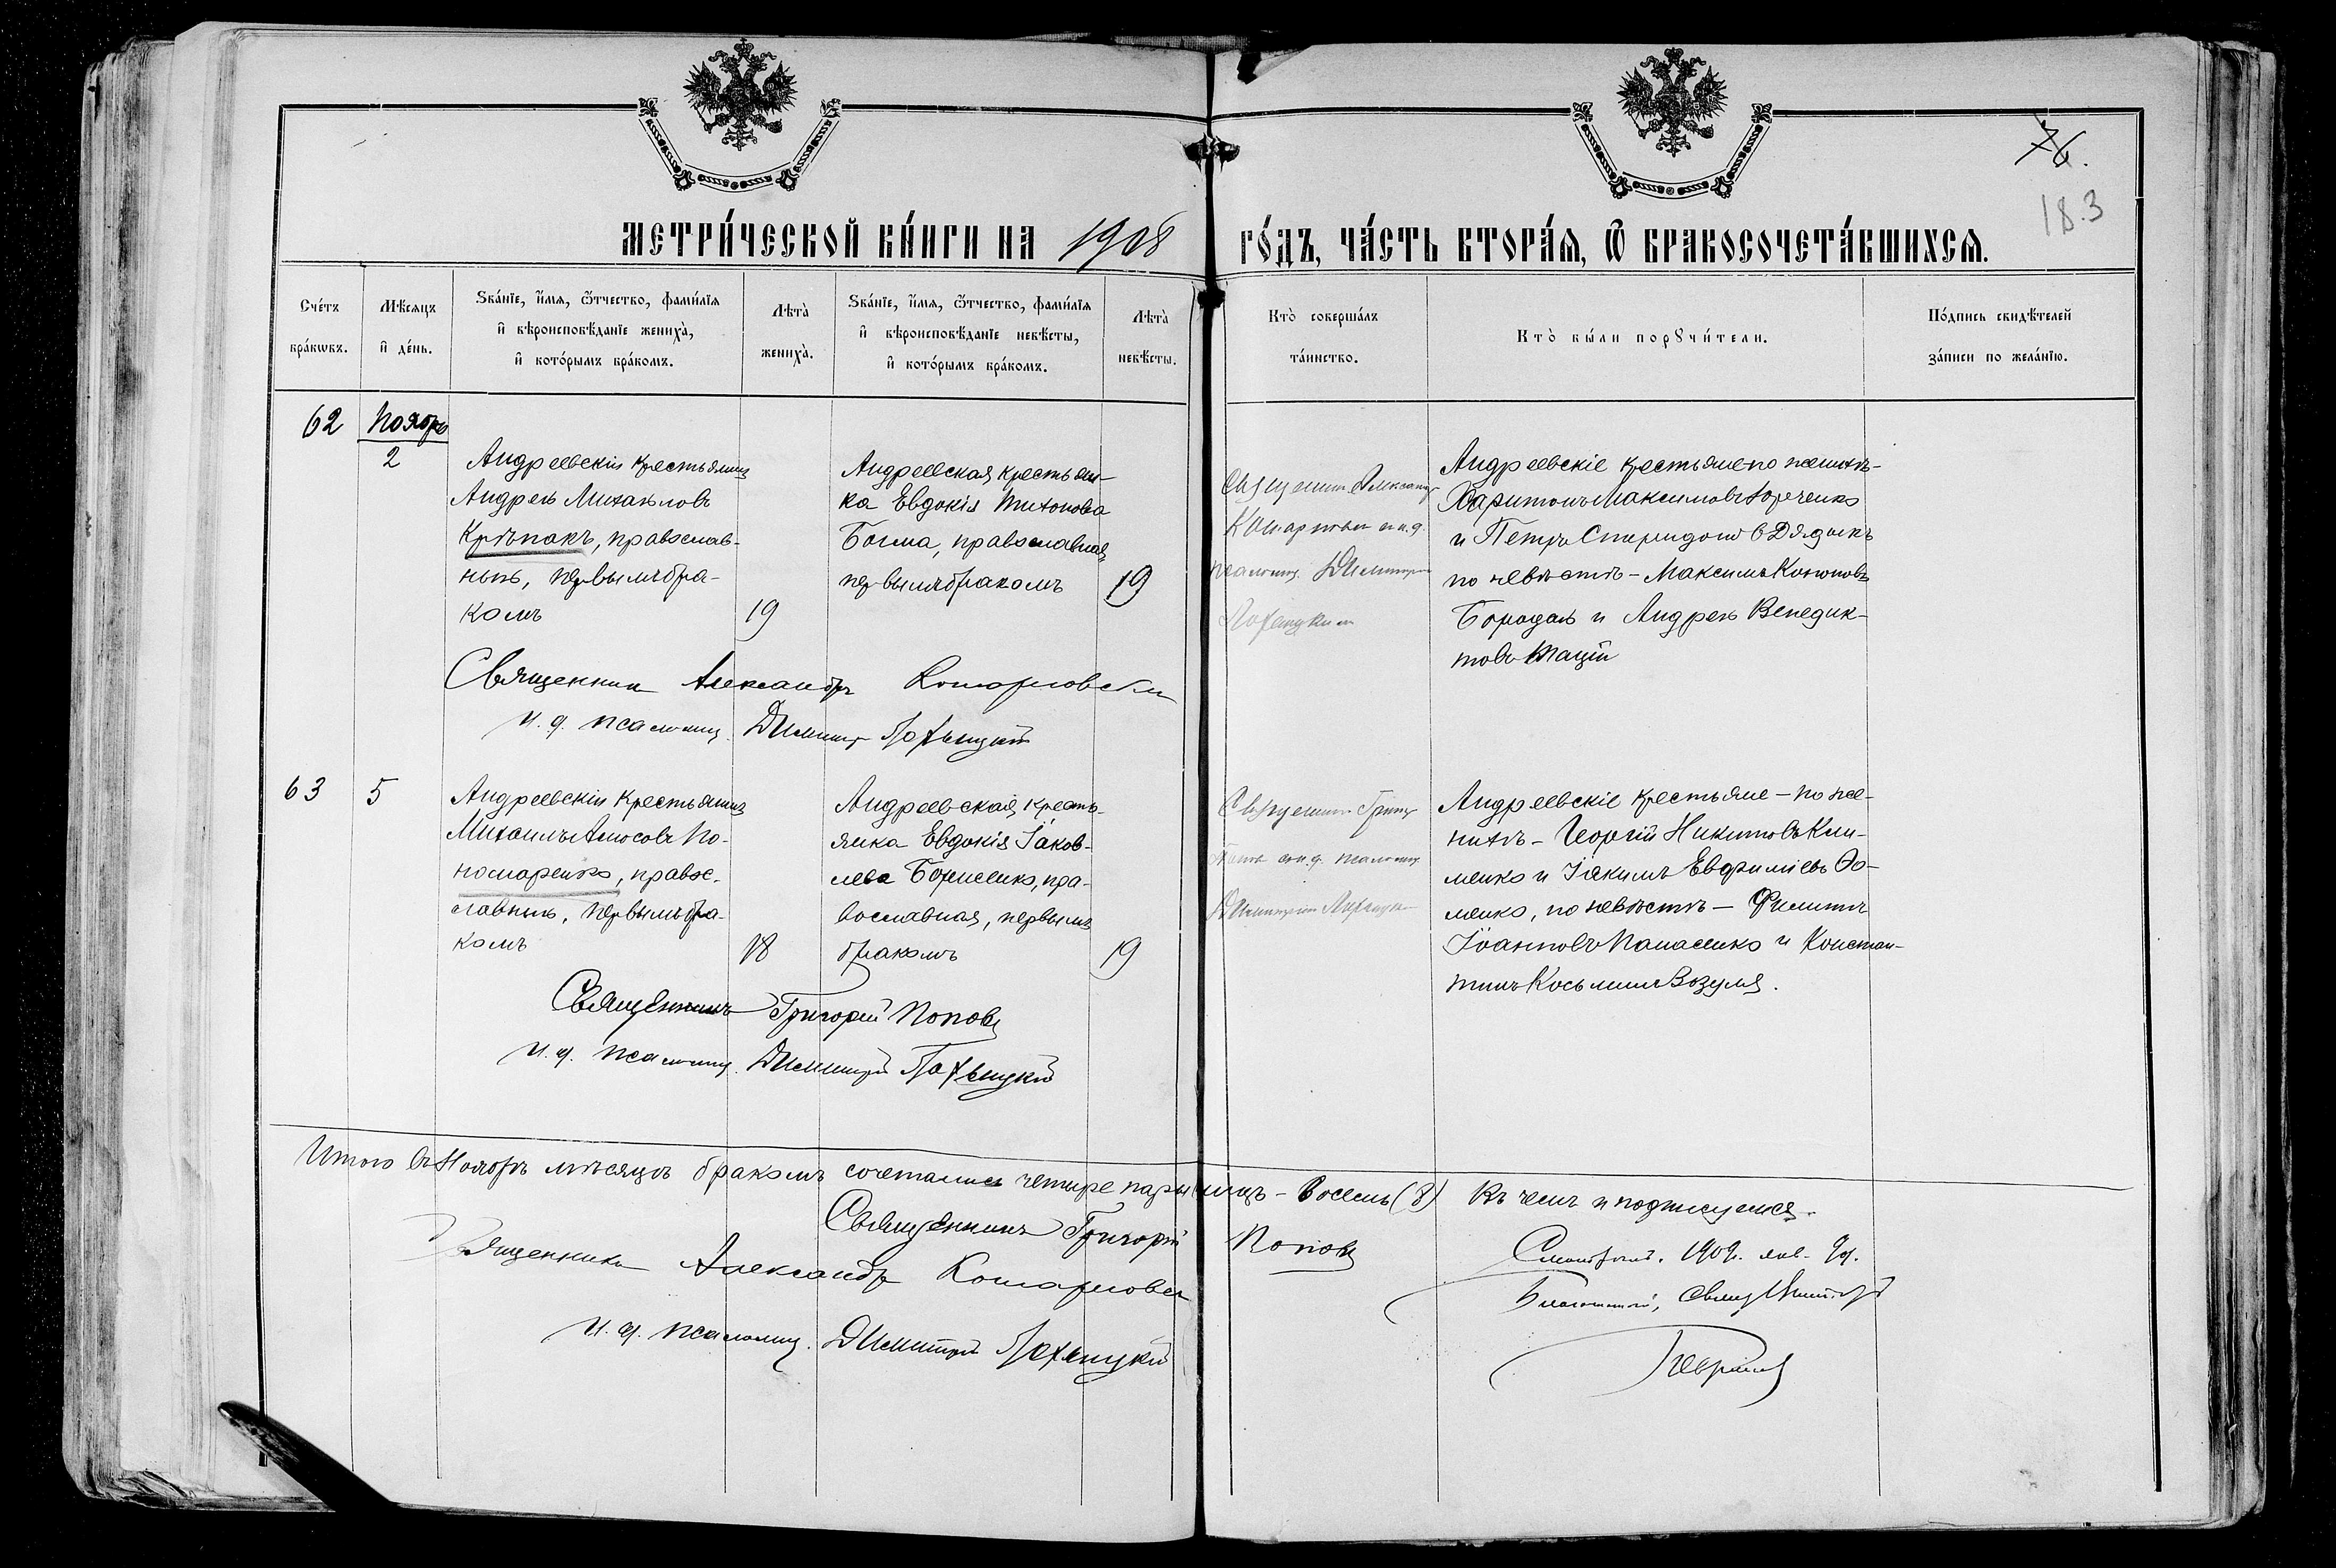 76.
18.3
МЕТРИ́ЧЕСКОЙ КНИ́ГИ НА 1908 ГО́ДЪ, ЧА́СТЬ ВТОРА́Я, Ѿ БРАКОСОЧЕТА́ВШИХСЯ.
Сче́тъ бра́кѡвъ.
Мѣ́сяцъ и҆ де́нь.
Ѕва́нїе, и҆́мя, ѻ҆́тчество, фами́лїя
и҆ вѣроисповѣ́данїе жениха̀,
и҆ кото́рымъ бра́комъ.
Лѣта̀ жениха̀.
Ѕва́нїе, и҆́мя, ѻ҆́тчество, фами́лїя
и҆ вѣроисповѣ́данїе невѣ́сты,
и҆ кото́рымъ бра́комъ.
Лѣта̀ невѣ́сты.
Кто̀ соверша́лъ
та́инство.
Кто̀ бы́ли порꙋчи́тели.
По́дпись свидѣ́телей
за́писи по жела́нїю.
62
Ноябрь
2
Андреевскій крестьянинъ
Андрей Михайловъ
Крѣпакъ, православ-
ный, первымъ бра-
комъ
19
Андреевская крестьян-
ка Евдокія Тихонова
Богма, православная,
первымъ бракомъ
19
Священникъ Александръ
и.д.
псаломщ. Димитрій
Андреевскіе крестьяне по женихѣ-
Харитонъ Максимовъ
и Петръ Спиридоновъ Дядыкъ
по невѣстѣ - Максимъ Кононовъ
Бородай и Андрей Венедик-
товъ Тацій
Священникъ Александръ
и. д. псаломщ. Димитр
63
5
Андреевскій крестьянинъ
Михаилъ Амосовъ По-
номаренко, право-
славный, первымъ бра-
комъ
18
Андреевская кресть-
янка Евдокія Іаков-
лева Борисенко, пра-
вославная, первымъ
бракомъ
19
Священникъ Григор
Поповъ и.д. псаломщ.
Димитрій
Андреевскіе крестьяне - по же-
нихѣ - Георгій Никитовъ Кли-
менко и Іакимъ Евфиміевъ Ѳо-
менко, по невѣстѣ - Филиппъ
Іоанновъ Панасенко и Констан-
тинъ Косьминъ Возуля.
Священникъ Григорій Поповъ
и. д. псаломщ. Димитрій
Итого въ Ноябрѣ мѣсяцѣ бракомъ сочетались четыре пары лицъ - восемь (8) Въ чемъ и подписуемся.
Священникъ Григорій Поповъ
Священникъ Александръ
и. д. псаломщ. Димитрій
1909. янв. 9 д.